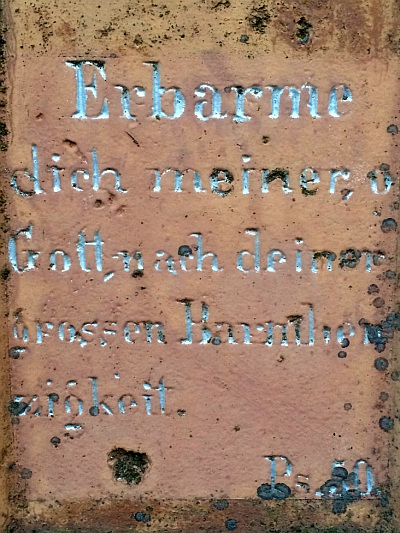 Erbarme
dich meiner, o
Gott, nach deiner
grossen Barmher
zigkeit.
Ps. 50.